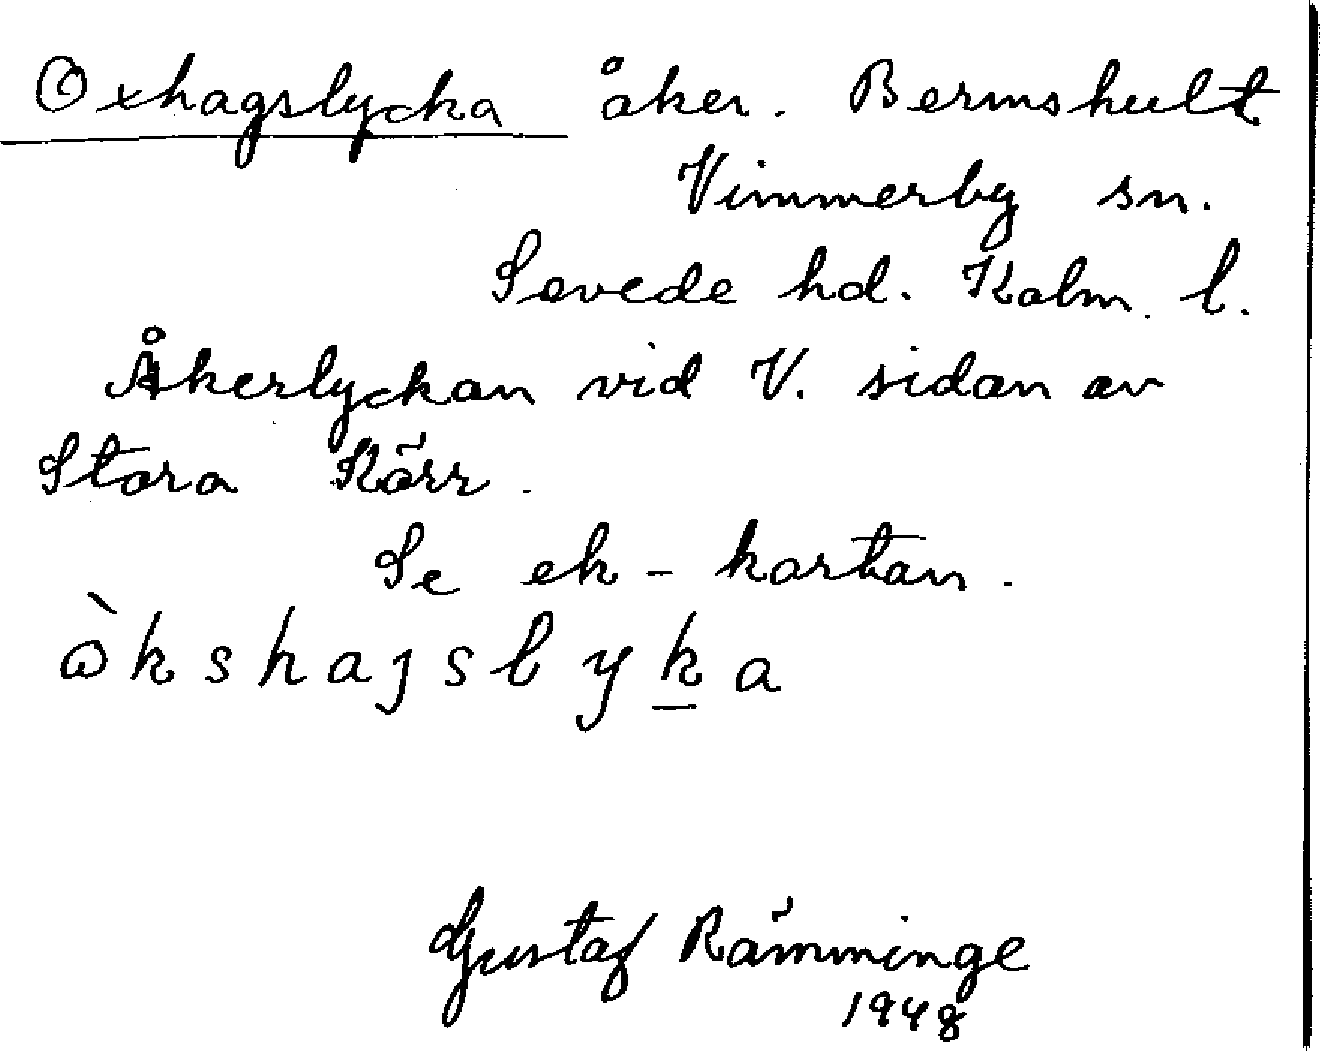 Oxhagslycka åker. Bermshult
Vimmerby sn.
Sevede hd. Kalm. l.
Åkerlyckan vid V. sidan av
Stora Kärr.
Se ek-kartan.
ὼkshaȷslyk̲a
Gustaf Rämminge
1948